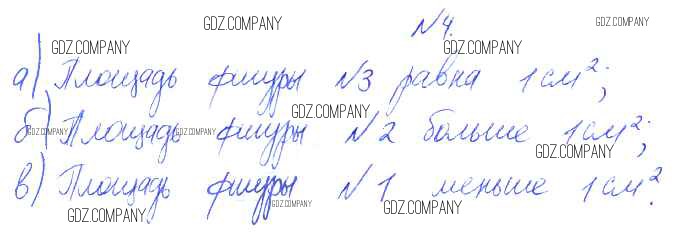 №4.
а) Площадь фигуры №3 равна 1 см²;
б) Площадь фигуры №2 больше 1 см²;
в) Площадь фигуры №1 меньше 1 см².
GDZ.COMPANY
GDZ.COMPANY
GDZ.COMPANY
GDZ.COMPANY
GDZ.COMPANY
GDZ.COMPANY
GDZ.COMPANY
GDZ.COMPANY
GDZ.COMPANY
GDZ.COMPANY
GDZ.COMPANY